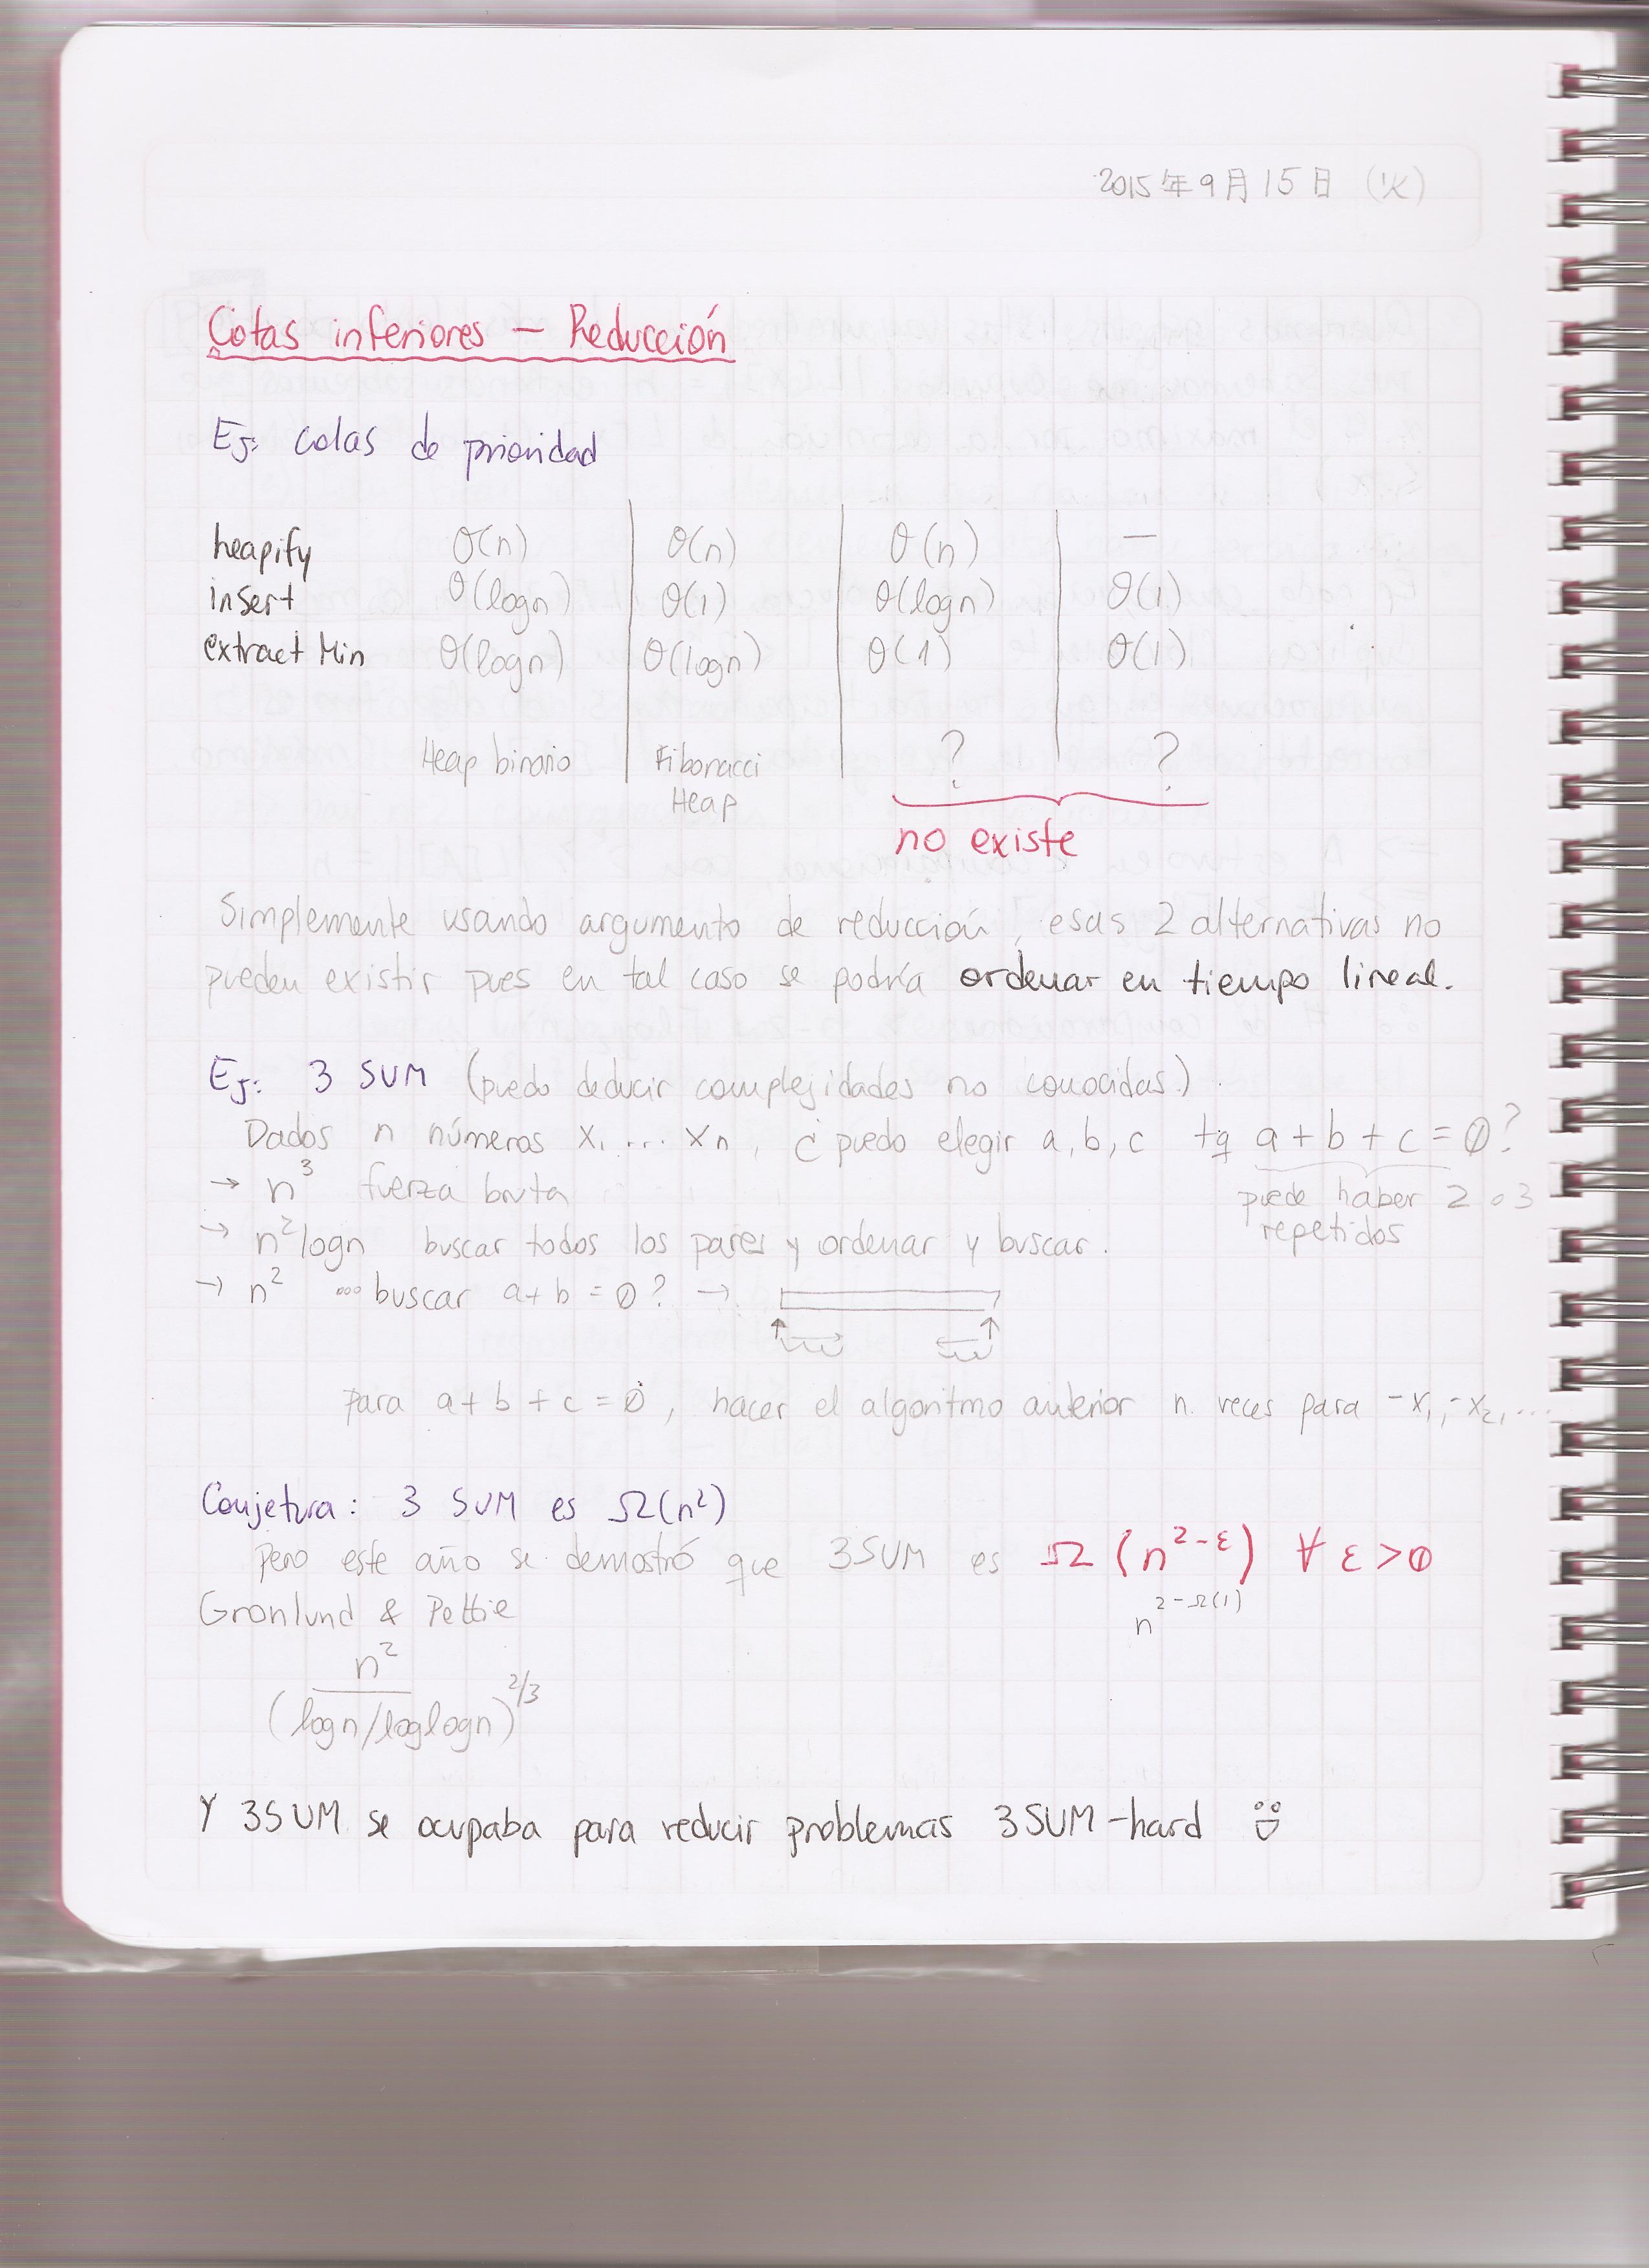 2015年9月15日 (火)
Cotas inferiores — Reducción
Ej: colas de prioridad
heapify O(n) O(n) O(n) —
insert O(logn) O(1) O(logn) O(1)
extract Min O(logn) O(logn) O(1) O(1)
Heap binario Fibonacci Heap ? ?
no existe
Simplemente usando argumento de reducción, esas 2 alternativas no
pueden existir pues en tal caso se podría ordenar en tiempo lineal.
Ej: 3 SUM (puedo deducir complejidades no conocidas)
Dados n números x₁ ... xn, ¿puedo elegir a, b, c tq a + b + c = 0?
puede haber 2 o 3
repetidos
→ n³ fuerza bruta
→ n² logn buscar todos los pares y ordenar y buscar.
→ n² ... buscar a + b = 0? →
para a + b + c = 0, hacer el algoritmo anterior n veces para -x₁, -x₂, ...
Conjetura: 3 SUM es Ω(n²)
Pero este año se demostró que 3SUM es Ω(n^{2-ε}) ∀ ε > 0
n^{2-Ω(1)}
Gronlund & Pettie
n²
(logn/loglogn)^{2/3}
Y 3SUM se ocupaba para reducir problemas 3SUM-hard